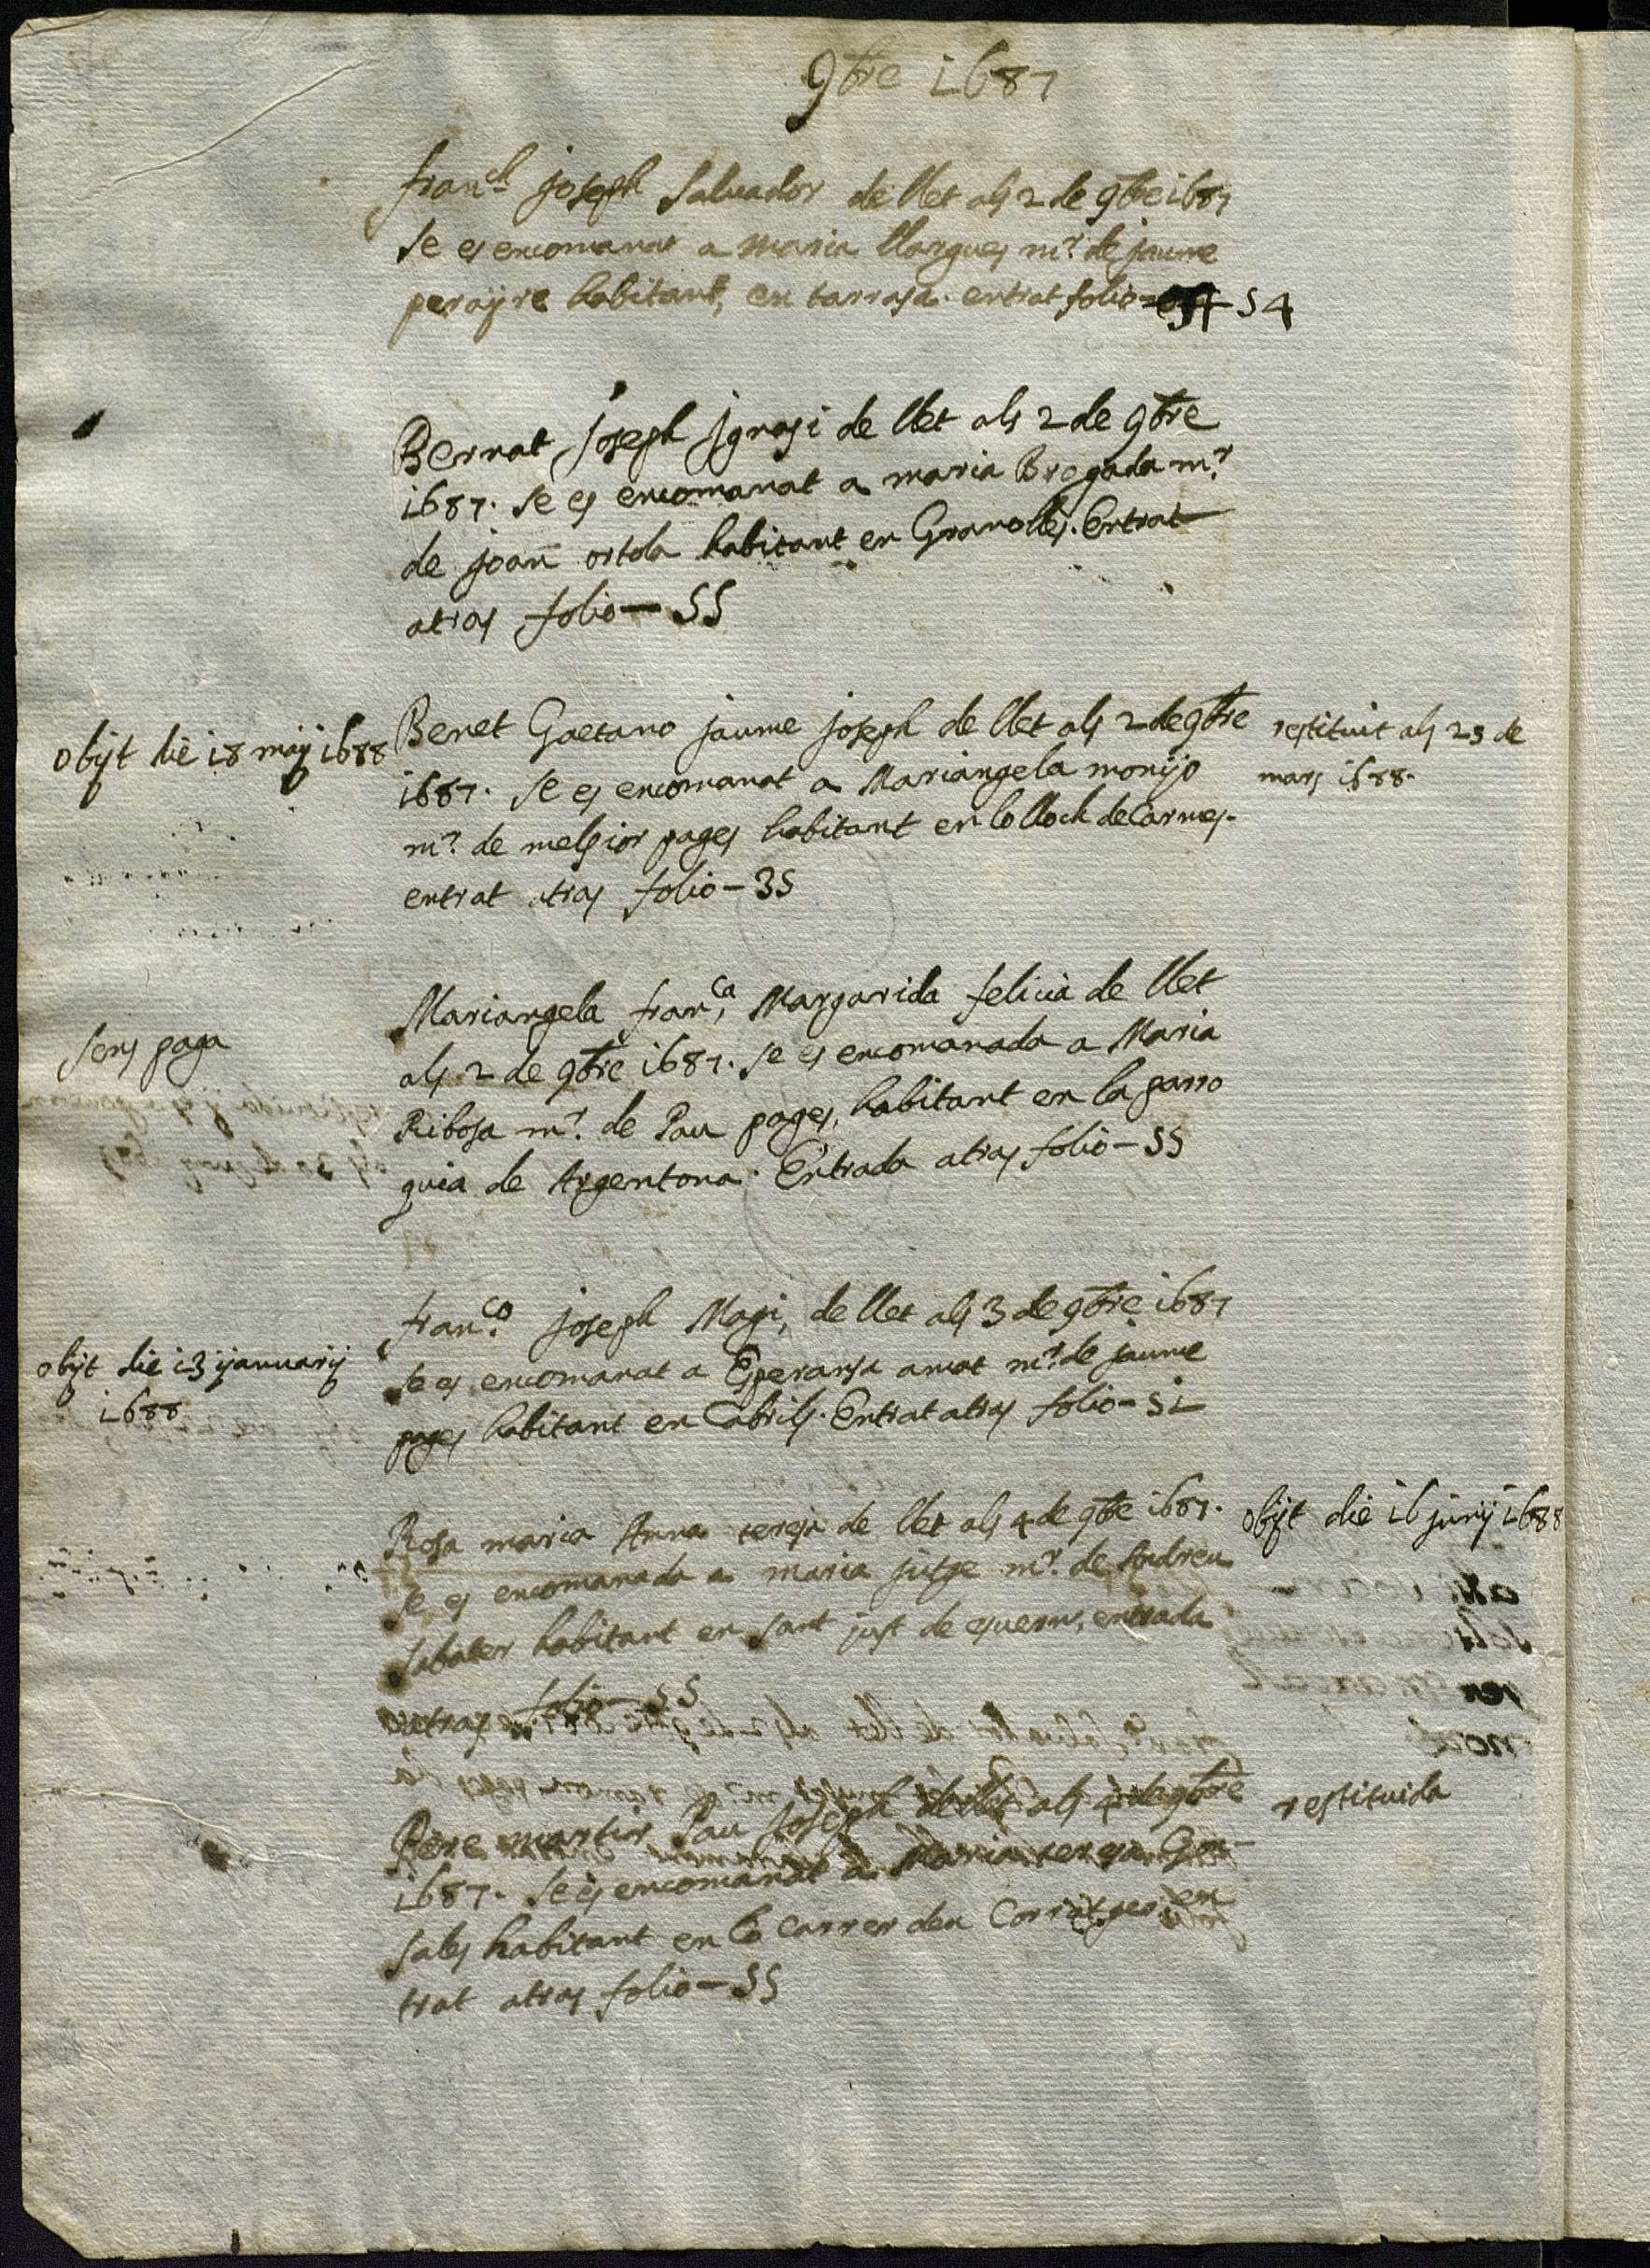 9bre 1687
franch joseph Saluador de llet als 2 de 9bre 1687
se es encomanat a Maria llargues mr de jaume
perayre habitant, en tarrasa. entrat folio 54
Bernat joseph jgnasi de llet als 2 de 9bre
1687. se es encomanat a maria Bregada mr
de joan ortola habitant en Granolles. Entrat
atras folio — 55
obijt die 18 maij 1688
Benet Gaetano jaume joseph de llet als 2 de 9bre
1687. se es encomanat a Mariangela monijo
mr de melsior pages habitant en lo lloch de Carmes.
entrat atras folio — 35
restituit als 25 de
mars 1688.
sens paga
Mariangela franca, Margarida felicia de llet
als 2 de 9bre 1687. se es encomanada a Maria
Ribosa mr. de Pau pages, habitant en la parro
quia de Argentona. Entrada atras folio — 55
obijt die 13 ijanuarij
1688
franco joseph Magi, de llet als 3 de 9bre 1687
se es encomanat a Esperansa amat mr de jaume
pages habitant en Cabrils. Entrat atras folio — 51
Rosa maria Anna teresa de llet als 4 de 9bre 1687.
se es encomanada a maria jutge mr. de Andreu
sabater habitant en sant just de esuern, entrada
atras folio — 55
obijt die 16 junij 1688
Pere martir Pau Joseph de llet als 4 de 9bre
1687. se es encomanat a Maria teresa Gon-
sales habitant en lo carrer den Corratger, en
trat atras folio — 55
restituida